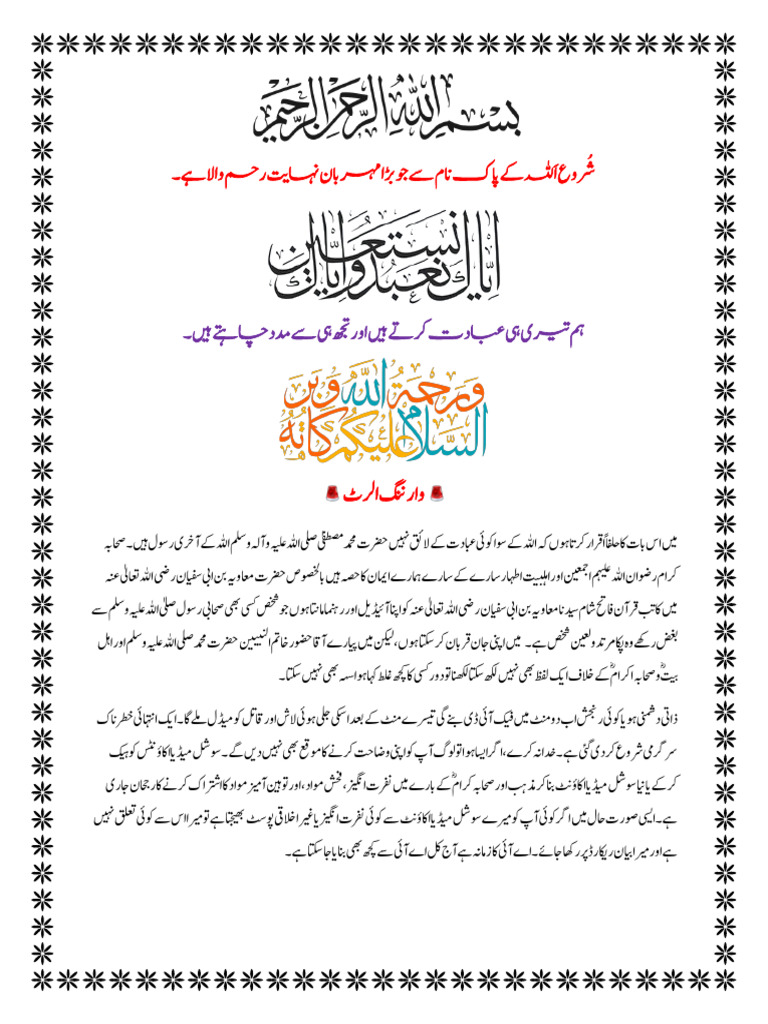 بسم الله الرحمن الرحيم
شُروع اَللہ کے پاک نام سے جو بڑا مہربان نہایت رحم والا ہے۔
اياك نعبد واياك نستعين
ہم تیری ہی عبادت کرتے ہیں اور تجھ ہی سے مدد چاہتے ہیں۔
السلام عليكم ورحمة الله وبركاته
وارننگ الرٹ
میں اس بات کا حلفاً اقرار کرتا ہوں کہ اللہ کے سوا کوئی عبادت کے لائق نہیں حضرت محمد مصطفٰی صلی اللہ علیہ و آلہ وسلم اللہ کے آخری رسول ہیں۔ صحابہ
کرام رضوان اللہ علیہم اجمعین اور اہلبیت اطہار سارے کے سارے ہمارے ایمان کا حصہ ہیں بالخصوص حضرت معاویہ بن ابی سفیان رضی اللہ تعالیٰ عنہ
میں کاتب قرآن فاتح شام سیدنا معاویہ بن ابی سفیان رضی اللہ تعالیٰ عنہ کو اپنا آئیڈیل اور رہنما مانتا ہوں جو شخص کسی بھی صحابی رسول صلی اللہ علیہ وسلم سے
بغض رکھے وہ پکا مرتد و لعین شخص ہے۔ میں اپنی جان قربان کر سکتا ہوں، لیکن میں پیارے آقا حضور خاتم النبیین حضرت محمد صلی اللہ علیہ وسلم اور اہل
بیتؓ و صحابہ اکرامؓ کے خلاف ایک لفظ بھی نہیں لکھ سکتا لکھنا تو دور کسی کا کچھ غلط کہا ہوا سہہ بھی نہیں سکتا۔
ذاتی دشمنی ہو یا کوئی رنجش اب دو منٹ میں فیک آئی ڈی بنے گی تیسرے منٹ کے بعد اسکی جلی ہوئی لاش اور قاتل کو میڈل ملے گا۔ ایک انتہائی خطرناک
سرگرمی شروع کردی گئی ہے۔ خدانہ کرے، اگر ایسا ہوا تو لوگ آپ کو اپنی وضاحت کرنے کا موقع بھی نہیں دیں گے۔ سوشل میڈیا اکاؤنٹس کو ہیک
کرکے یا نیا سوشل میڈیا اکاؤنٹ بنا کر مذہب اور صحابہ کرامؓ کے بارے میں نفرت انگیز، فحش مواد، اور توہین آمیز مواد کا اشتراک کرنے کا رجحان جاری
ہے۔ ایسی صورت حال میں اگر کوئی آپ کو میرے سوشل میڈیا اکاؤنٹ سے کوئی نفرت انگیز یا غیر اخلاقی پوسٹ بھیجتا ہے تو میرا اس سے کوئی تعلق نہیں
ہے اور میرا بیان ریکارڈ پر رکھا جائے۔ اے آئی کا زمانہ ہے آج کل اے آئی سے کچھ بھی بنایا جا سکتا ہے۔